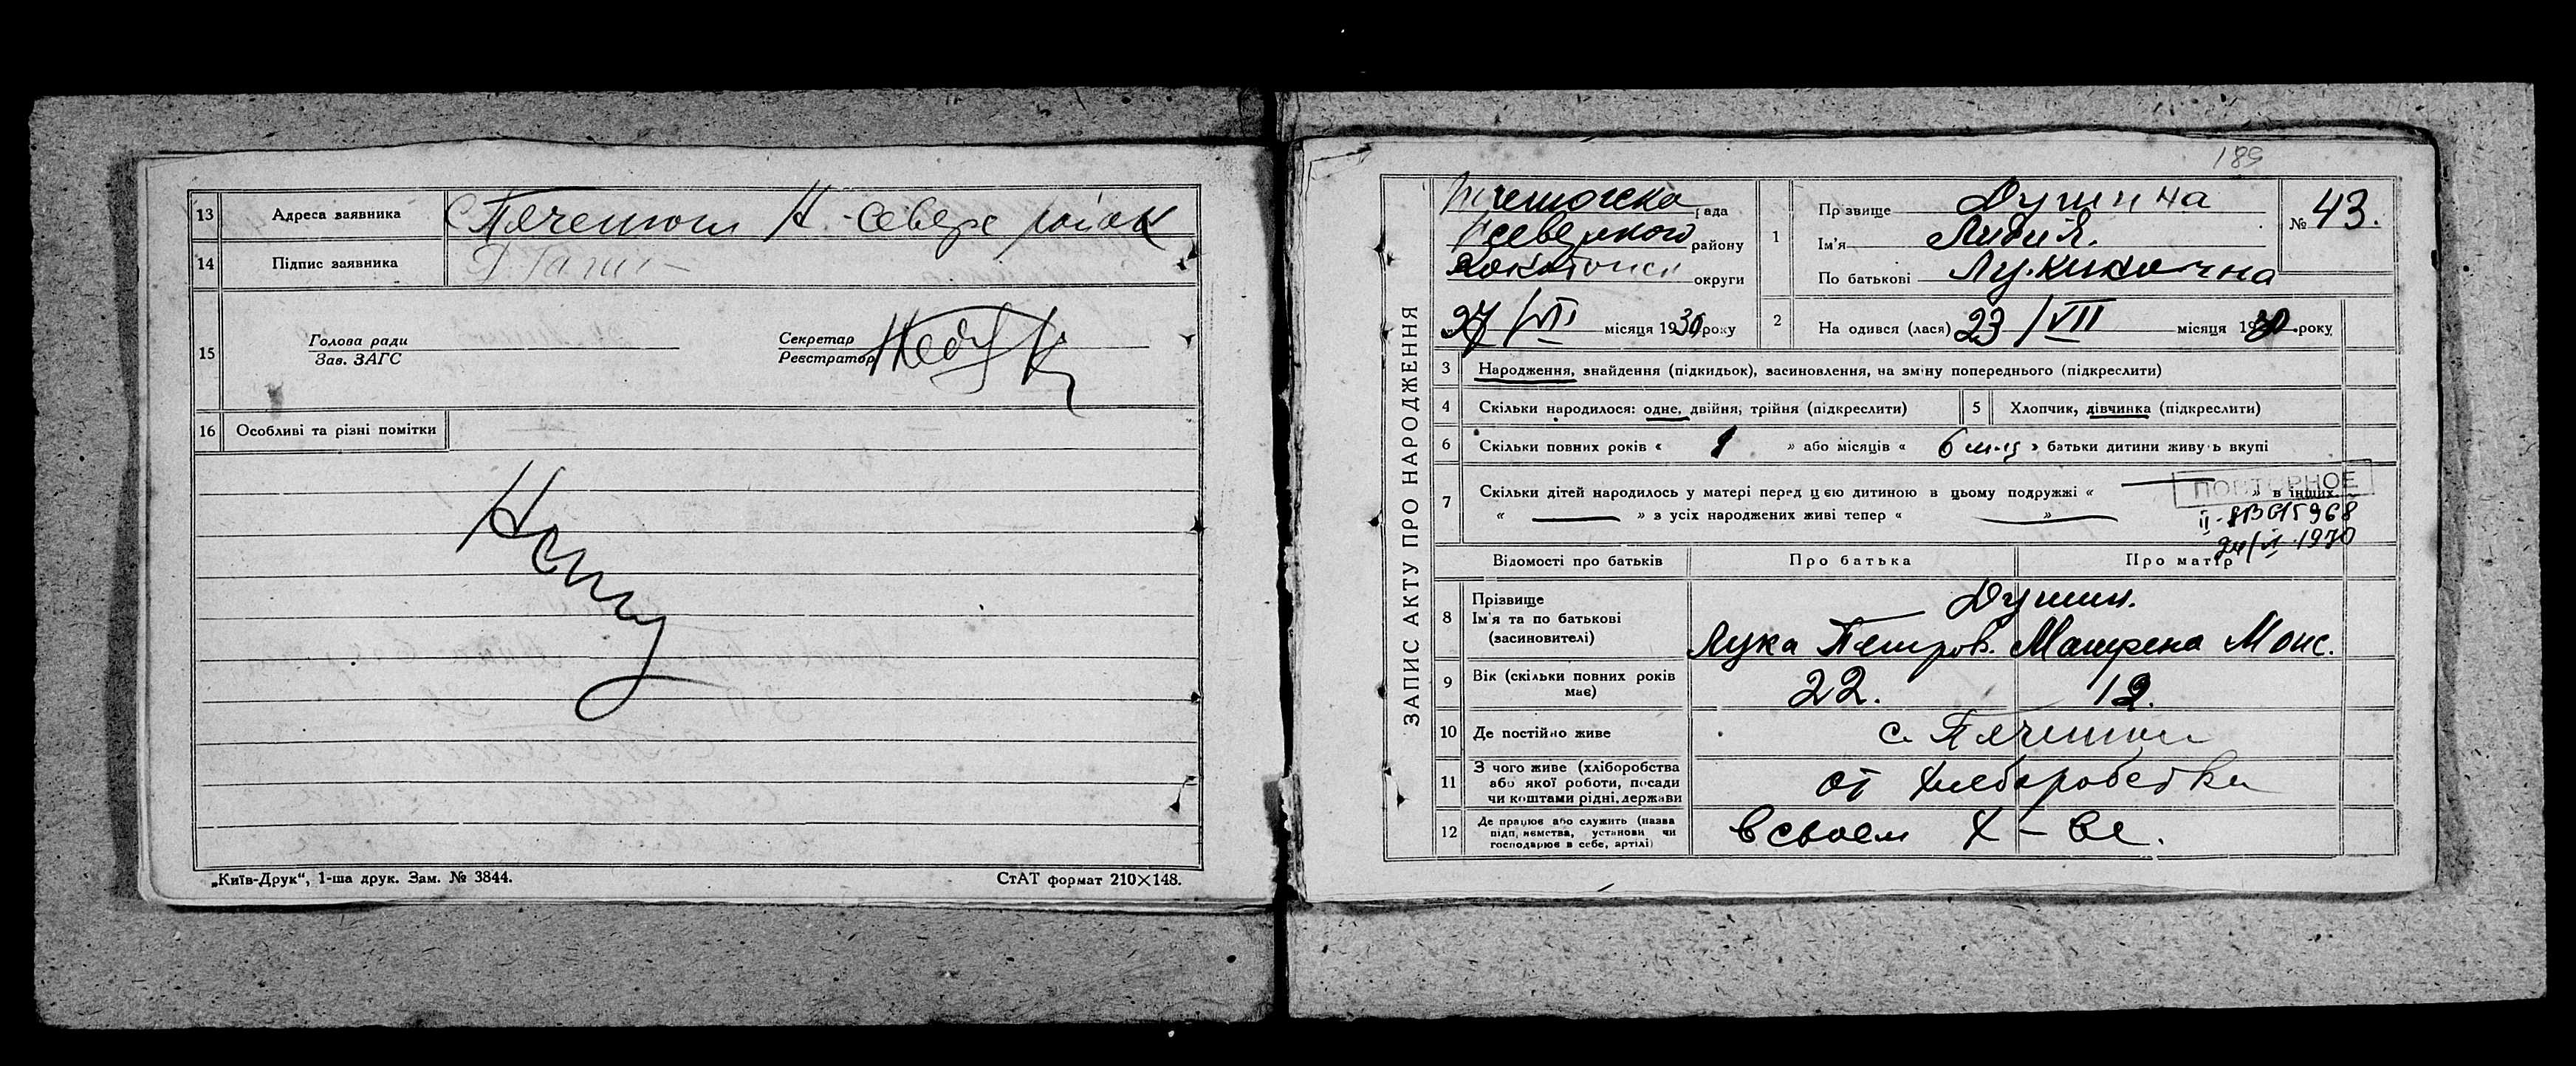 13 Адреса заявника с Пячетои Н.-Северс район
14 Підпис заявника
15 Голова ради
Зав. ЗАГС
Секретар
Реєстратор
16 Особливі та різні помітки
„Київ-Друк“, 1-ша друк. Зам. № 3844.
СтАТ формат 210×148.
189
ЗАПИС АКТУ ПРО НАРОДЖЕННЯ
рада
району
округи
27/VII місяця 1930 року
1 Прізвище Душина
Ім'я Лидия.
По батькові Лу
№ 43.
2 На одився (лася) 23/VII місяця 1930 року
3 Народження, знайдення (підкидьок), засиновлення, на зміну попереднього (підкреслити)
4 Скільки народилося: одне, двійня, трійня (підкреслити)
5 Хлопчик, дівчинка (підкреслити)
6 Скільки повних років « 1 » або місяців « 6 м-ц » батьки дитини живуть вкупі
7 Скільки дітей народилось у матері перед цією дитиною в цьому подружжі « — » в інших
« — » з усіх народжених живі тепер « — »
ПОВТОРНОЕ
1970
Відомості про батьків
Про батька
Про матір
8 Прізвище
Ім'я та по батькові
(засиновителі)
Душин.
Лука Петров. Матрена Моис.
9 Вік (скільки повних років
має)
22. 19.
10 Де постійно живе
11 З чого живе (хліборобства
або якої роботи, посади
чи коштами рідні, держави
от хлеборобства
12 Де працює або служить (назва
підприємства, установи чи
господарює в себе, артілі)
в своем х-ве.